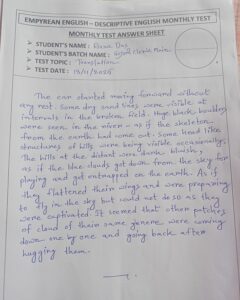 EMPYREAN ENGLISH – DESCRIPTIVE ENGLISH MONTHLY TEST
MONTHLY TEST ANSWER SHEET
➢ STUDENT'S NAME : Das
➢ STUDENT'S BATCH NAME :
➢ TEST TOPIC : Translation
➢ TEST DATE :
The car started moving forward without
any rest. Some dry sand lines were visible at
intervals in the broken field. Huge black boulders
were seen in the river – as if the skeleton
from the earth had come out. Some head like
structures of hills were being visible occasionally.
The hills at the distant were dark bluish;
as if the blue clouds got down from the sky for
playing and got entrapped on the earth. As if
they flattened their wings and were preparing
to fly in the sky but could not do so as they
were captivated. It seemed that other patches
of cloud of their same were coming
down one by one and going back after
hugging them.